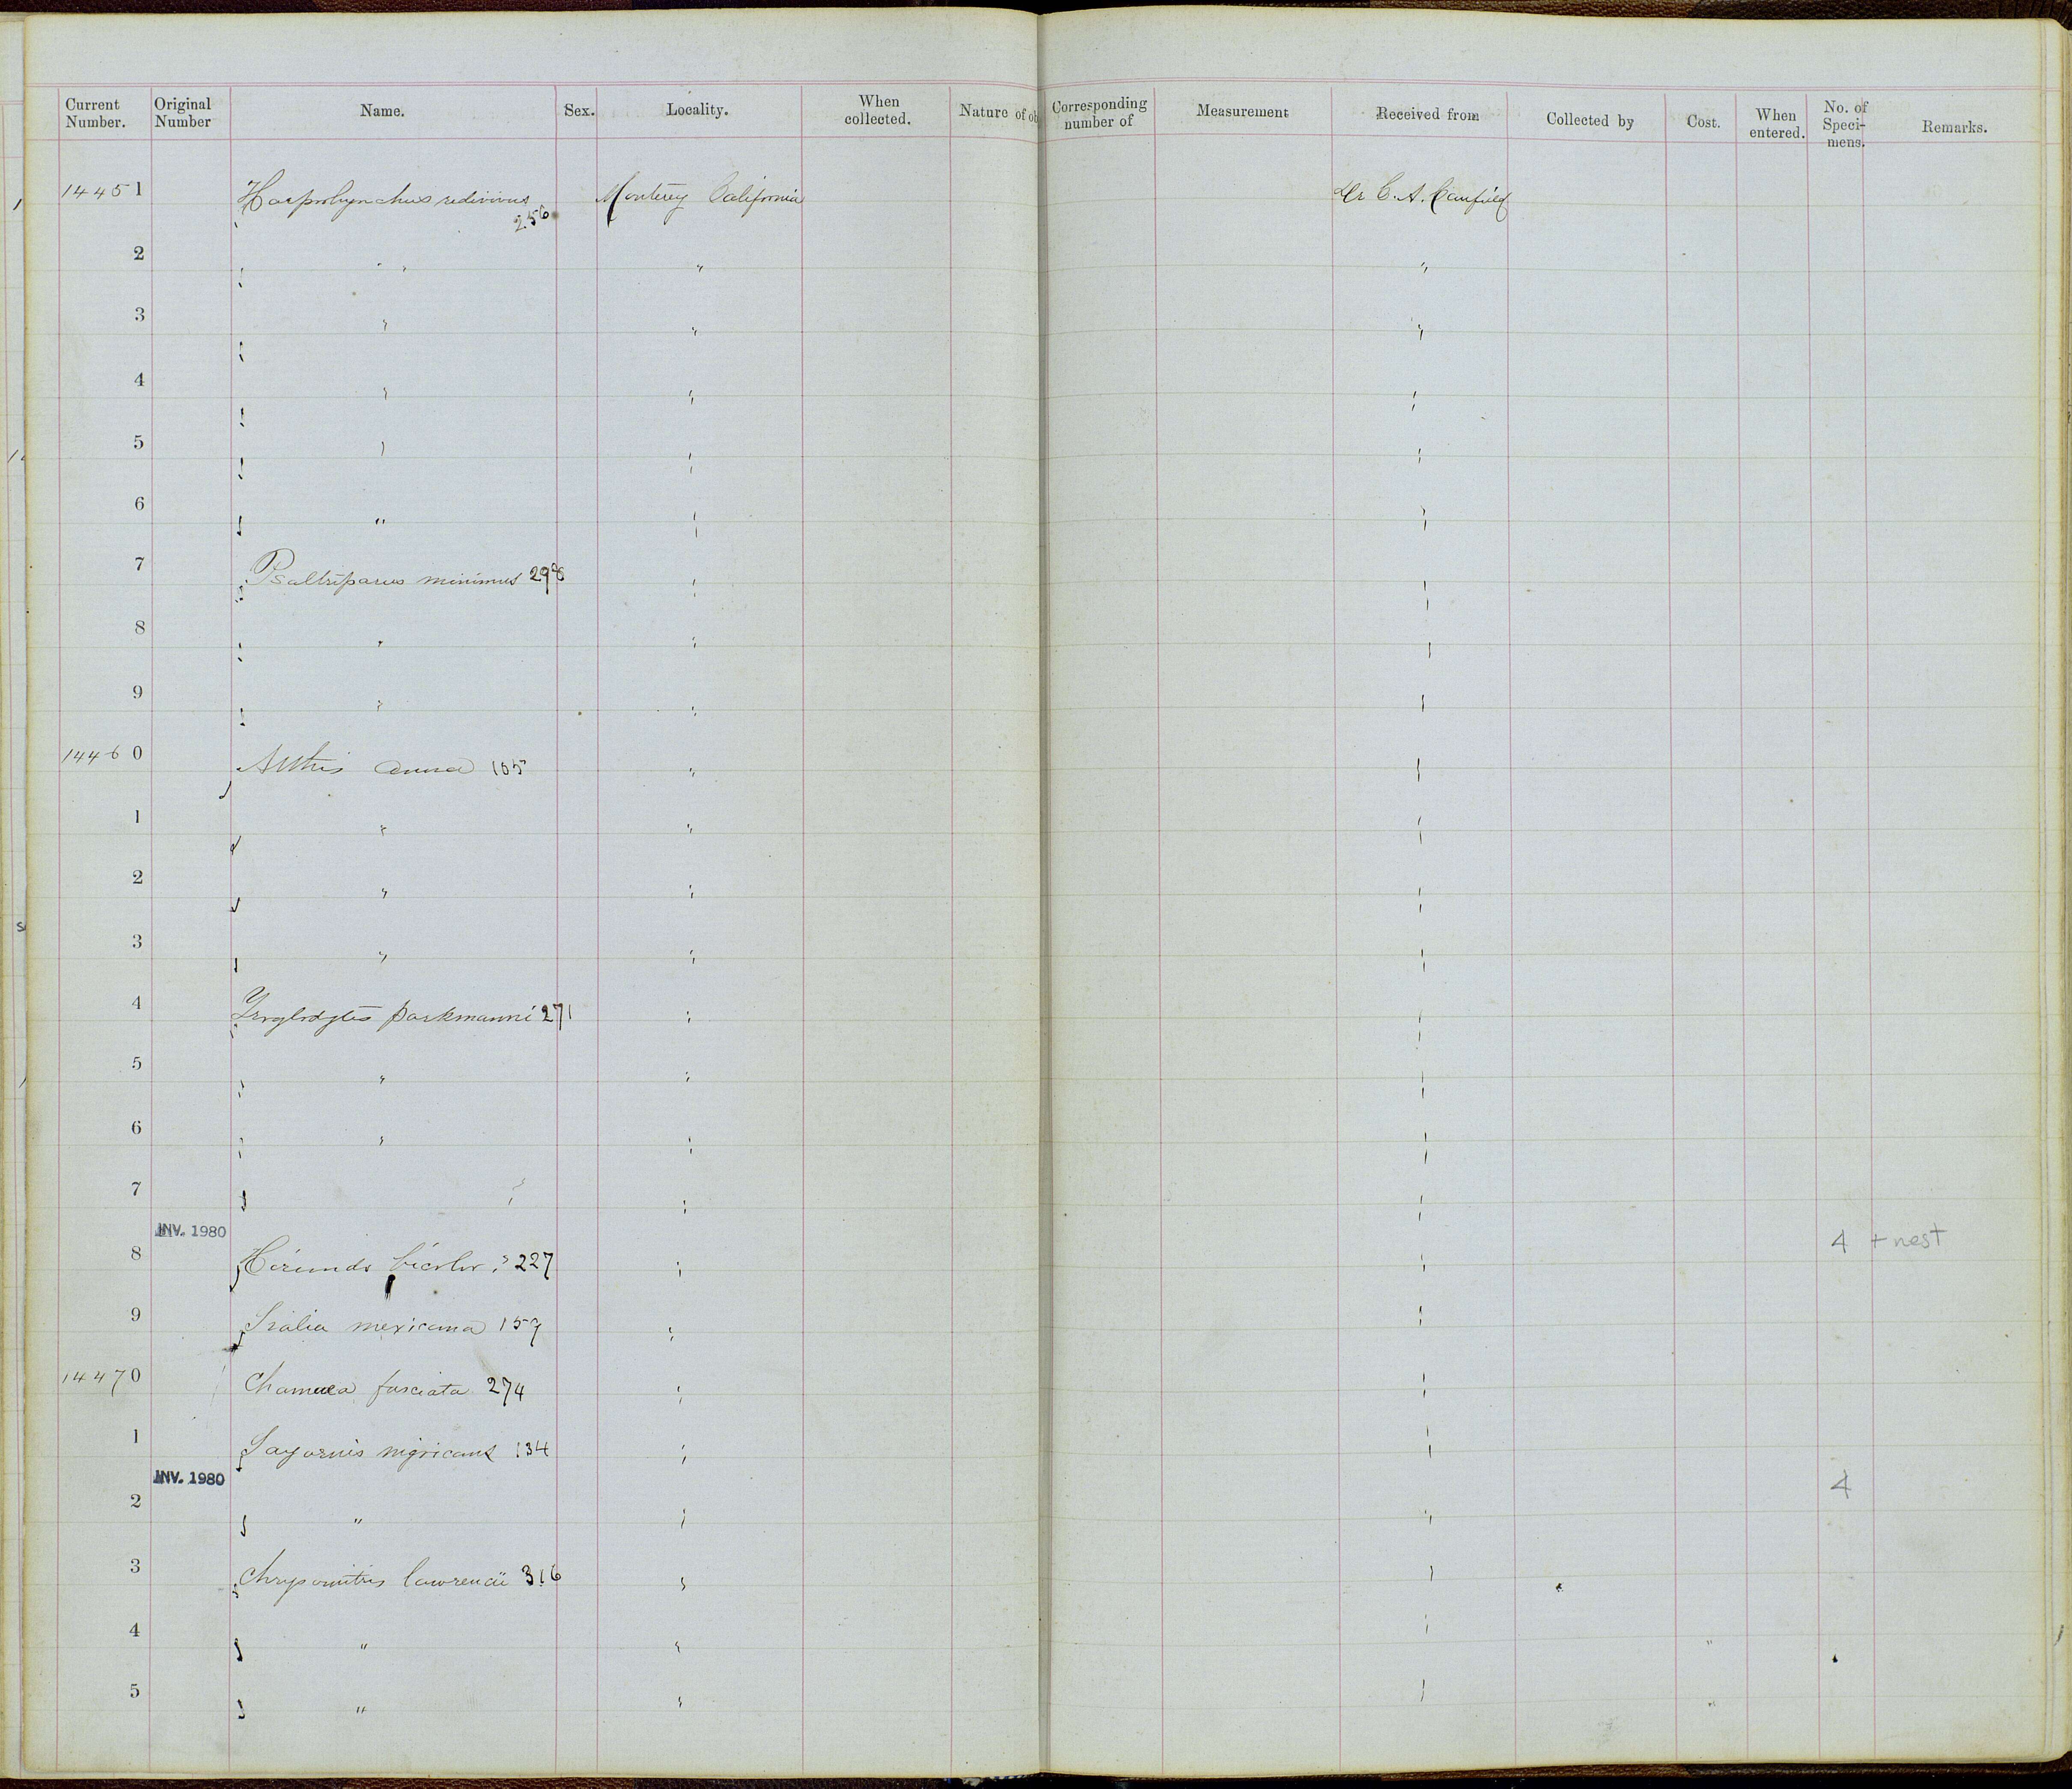 Current Number. Original Number Name. Sex. Locality. When collected. Nature of ob Corresponding number of Measurement Received from Collected by Cost. When entered. No. of Speci-mens. Remarks.
14451 Harporhynchus redivivus Monterey California Dr C. A. Canfield
256
2 " " " "
3 " " "
4 " " "
5 " " "
6 " " "
7 Psaltriparus minimus 298 " "
8 " " "
9 " " "
14460 Atthis anna 105 " "
1 " " "
2 " " "
3 " " "
4 Troglodytes parkmanni 271 " "
5 " " "
6 " " "
7 " " "
INV. 1980
8 Hirundo bicolor ? 227 " " 4 + nest
9 Sialia mexicana 159 " "
14470 Chamaea fasciata 274 " "
1 Sayornis nigricans 134 " "
INV. 1980
2 " " " 4
3 Chrysomitris lawrencii 316 " "
4 " " "
5 " " "